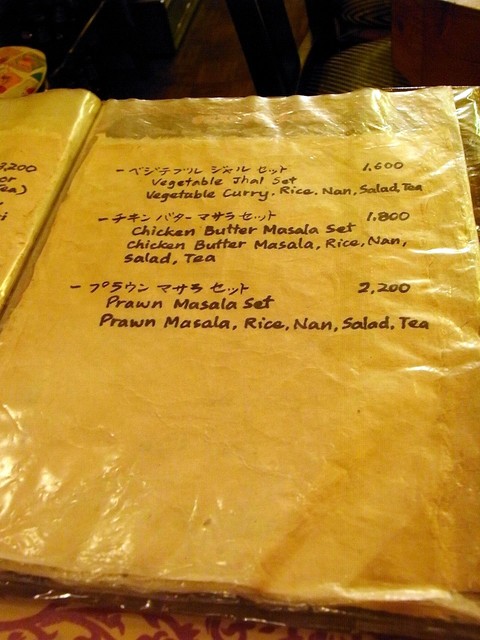 3,200
or
Tea)
- ベジテブル ジャル セット 1,600
Vegetable Jhal Set
Vegetable Curry, Rice, Nan, Salad, Tea
- チキン バター マサラ セット 1,800
Chicken Butter Masala Set
Chicken Butter Masala, Rice, Nan,
Salad, Tea
- プラウン マサラ セット 2,200
Prawn Masala Set
Prawn Masala, Rice, Nan, Salad, Tea